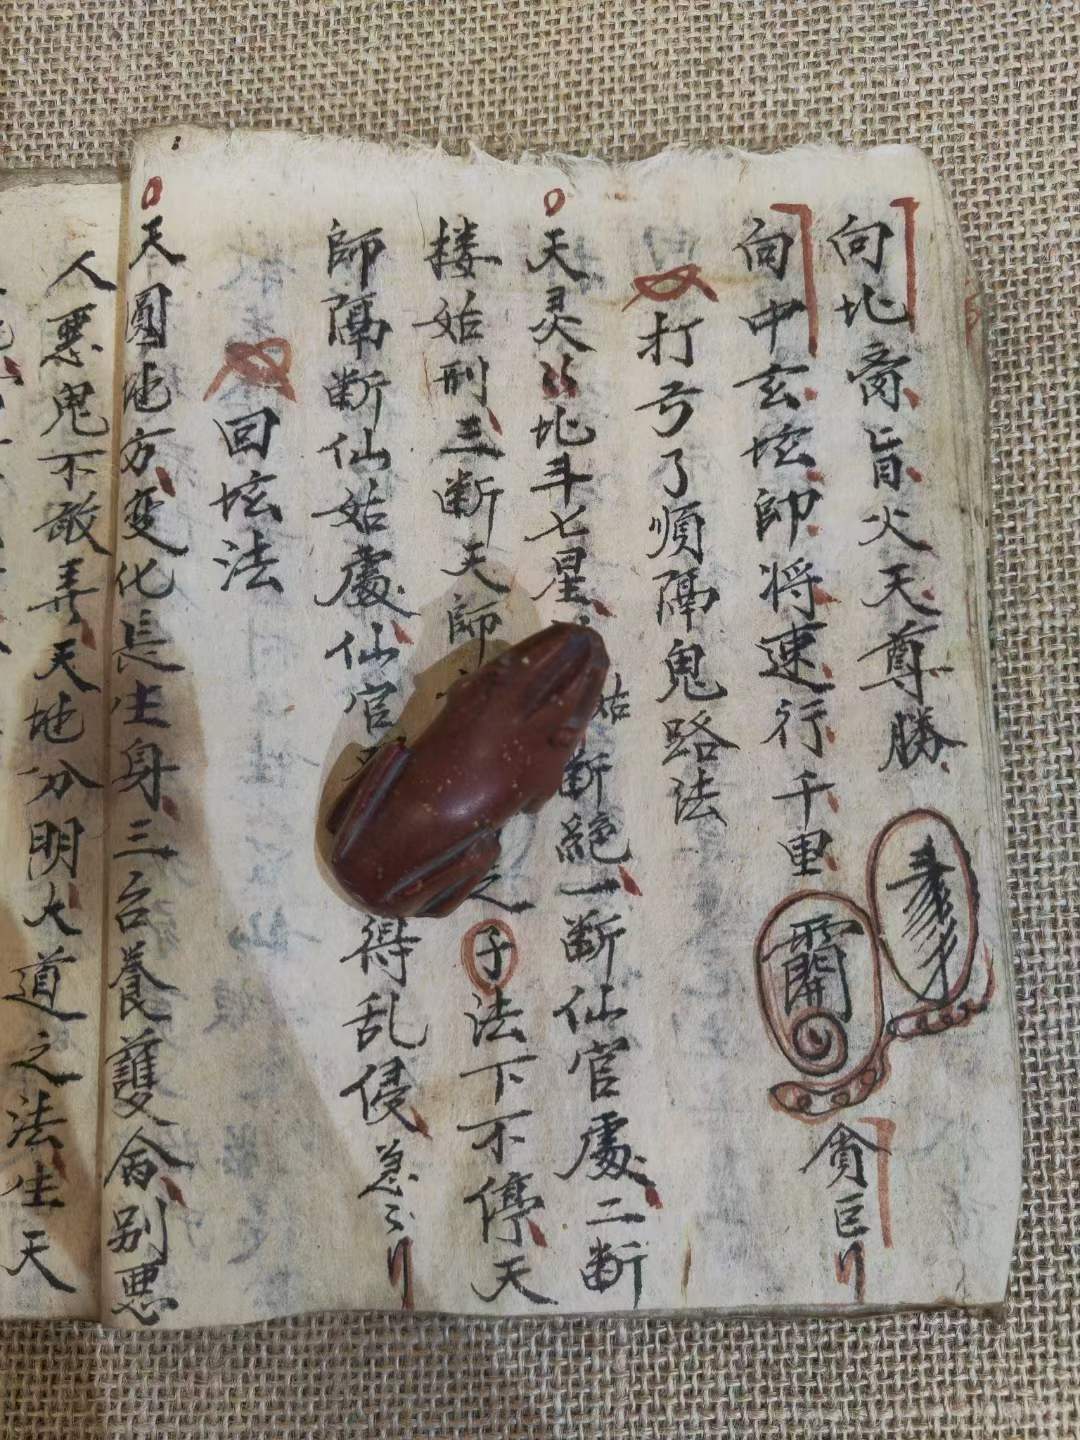 向北斎旨火天尊勝
向中玄坛帅将速行千里 貪巨
打弓了順隔鬼路法
天灵 北斗七星 姑断絕一断仙官處二断
楼姑刑三断天師 之子法下不停天
師隔断仙姑處仙官 得乱侵急
回坛法
天圓地方变化長生身三台養護命别惡
人惡鬼不敢弄天地分明大道之法生天